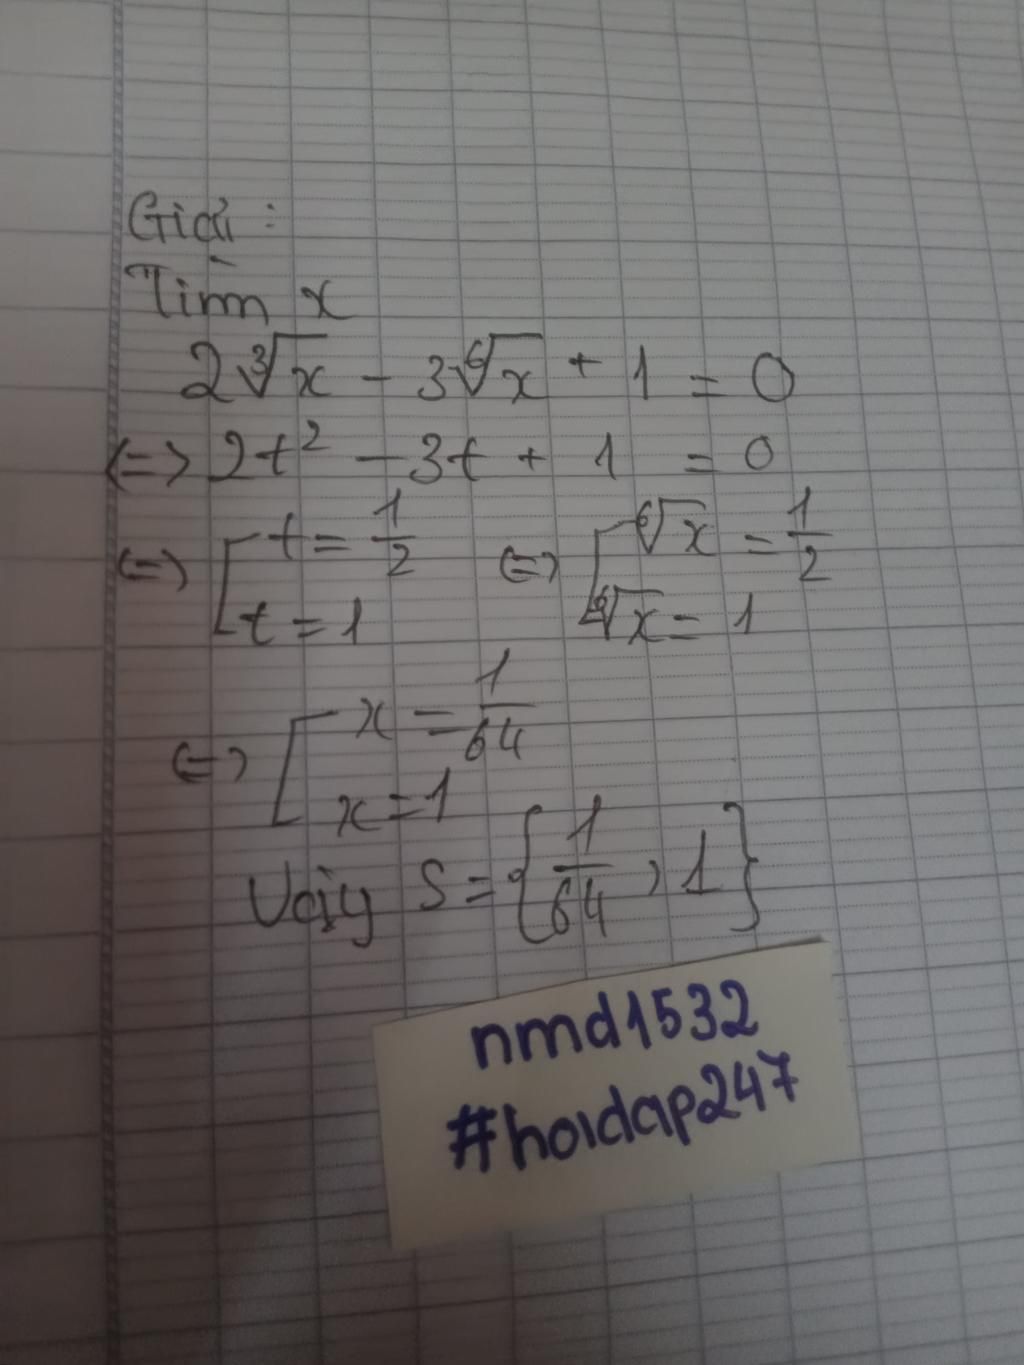 Giải :
Tìm x
2∛x - 3⁶√x + 1 = 0
<=> 2t² - 3t + 1 = 0
<=> [ t = 1/2 <=> [ ⁶√x = 1/2
t = 1 ⁶√x = 1
<=> [ x = 1/64
x = 1
Vậy S = { 1/64 , 1 }
nmd1532
#hoidap247